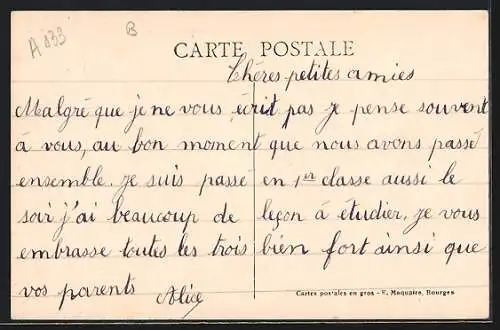 A 833
B
CARTE POSTALE
Chères petites amies
Malgré que je ne vous écrit pas je pense souvent
à vous, au bon moment que nous avons passé
ensemble. Je suis passé en 1er classe aussi le
soir j'ai beaucoup de leçon à étudier. Je vous
embrasse toutes les trois bien fort ainsi que
vos parents
Alice
Cartes postales en gros - E. Maquaire, Bourges